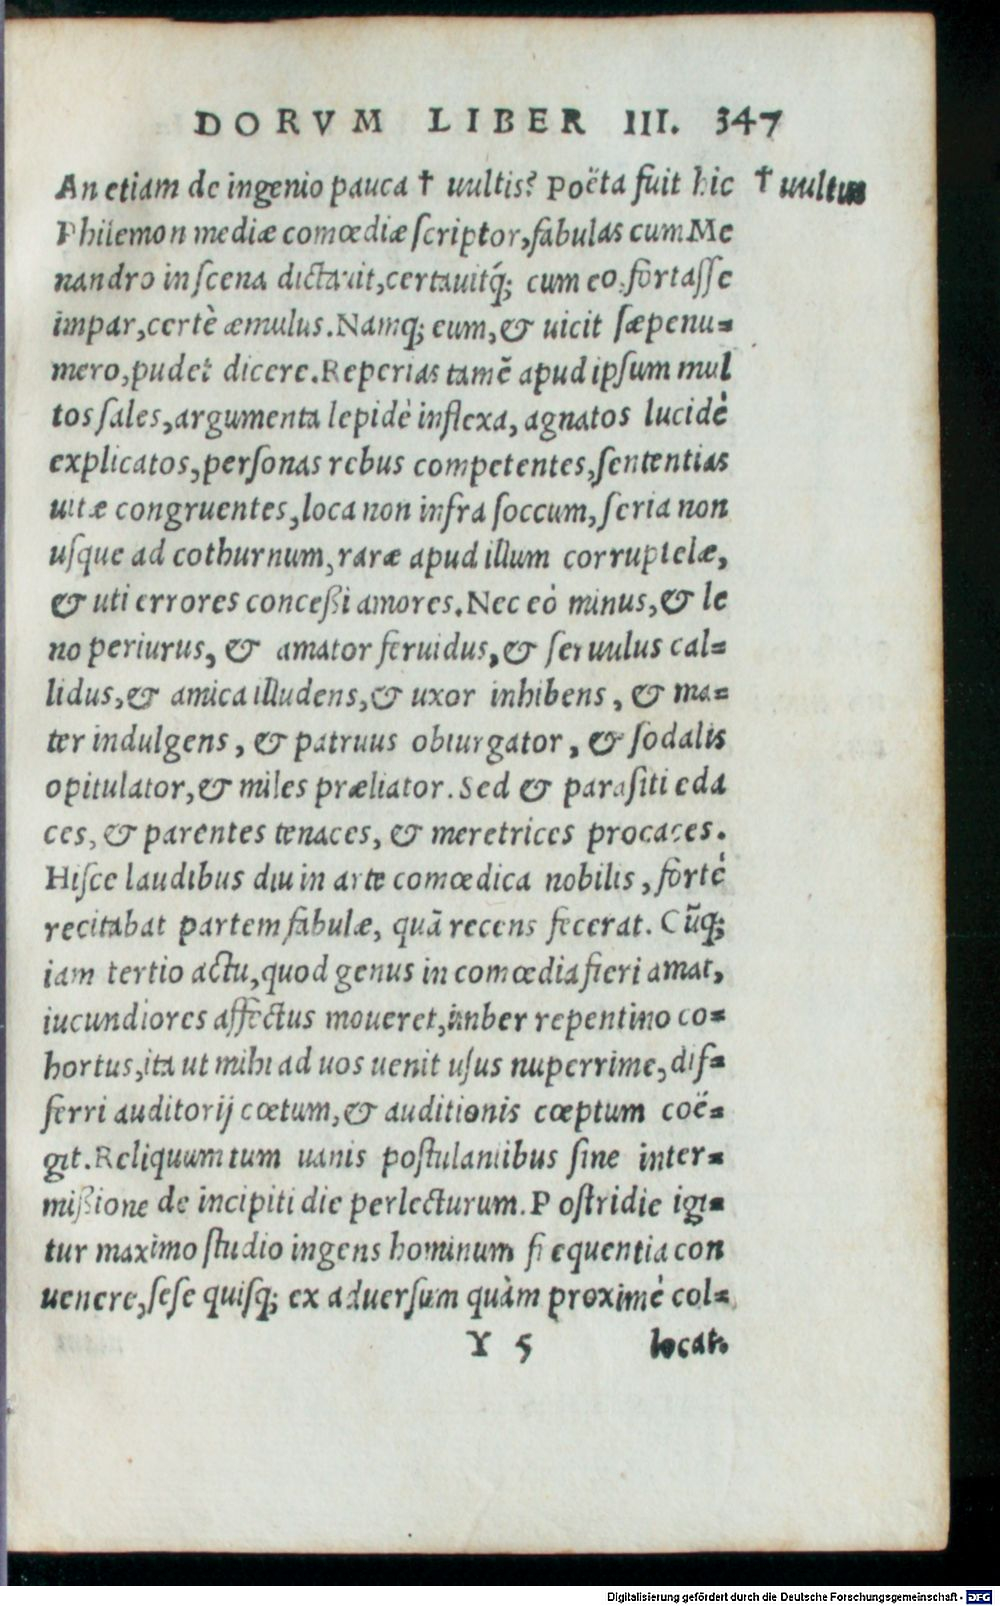 DORVM LIBER III. 347
An etiam de ingenio pauca † uultis? Poëta fuit hic † uultus
Philemon mediæ comœdiæ scriptor, fabulas cum Me
nandro in scena dictauit, certauitq́; cum eo, fortasse
impar, certè æmulus. Namq; eum, & uicit sæpenu-
mero, pudet dicere. Reperias tamē apud ipsum mul
tos sales, argumenta lepidè inflexa, agnatos lucidè
explicatos, personas rebus competentes, sententias
uitæ congruentes, loca non infra soccum, seria non
usque ad cothurnum, raræ apud illum corruptelæ,
& uti errores conceßi amores. Nec eò minus, & le
no periurus, & amator feruidus, & seruulus cal-
lidus, & amica illudens, & uxor inhibens, & ma-
ter indulgens, & patruus obiurgator, & sodalis
opitulator, & miles præliator. Sed & parasiti eda
ces, & parentes tenaces, & meretrices procaces.
Hisce laudibus diu in arte comœdica nobilis, fortè
recitabat partem fabulæ, quā recens fecerat. Cūq;
iam tertio actu, quod genus in comœdia fieri amat,
iucundiores affectus moueret, imber repentino co-
hortus, ita ut mihi ad uos uenit usus nuperrime, dif-
ferri auditorij cœtum, & auditionis cœptum coë-
git. Reliquum tum uanis postulantibus sine inter-
mißione de incipiti die perlecturum. Postridie igi-
tur maximo studio ingens hominum frequentia con
uenere, sese quisq; ex aduersum quàm proximè col-
Y 5 locat.
Digitalisierung gefördert durch die Deutsche Forschungsgemeinschaft - DFG